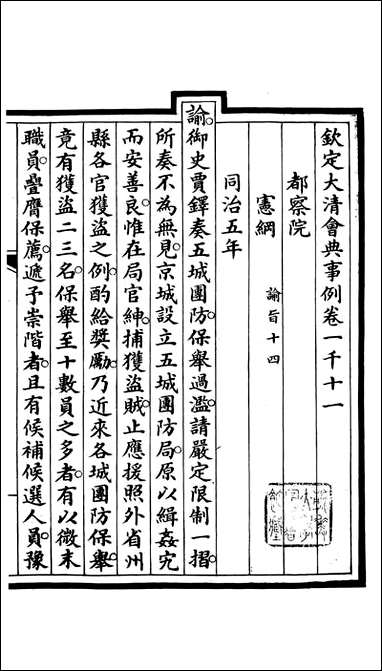 欽定大清會典事例卷一千十一
都察院
憲綱 諭旨十四
同治五年
諭。御史賈鐸奏五城團防保舉過濫請嚴定限制一摺。
所奏不為無見。京城設立五城團防局。原以緝姦宄
而安善良。惟在局官紳。捕獲盜賊。止應援照外省州
縣各官獲盜之例。酌給獎勵。乃近來各城團防保舉。
竟有獲盜二三名。保舉至十數員之多者。有以微末
職員。疊膺保薦。遞予崇階者。且有候補候選人員。豫